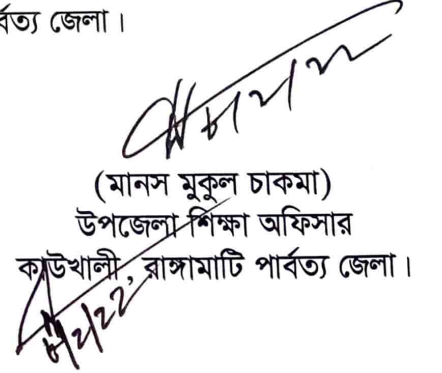 র্বত্য জেলা।
(মানস মুকুল চাকমা)
উপজেলা শিক্ষা অফিসার
কাউখালী, রাঙ্গামাটি পার্বত্য জেলা।